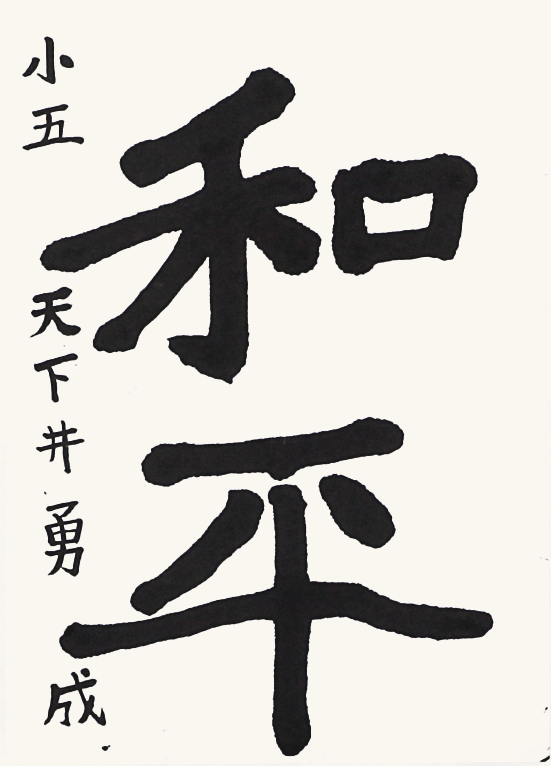 和平
小五 天下井勇成